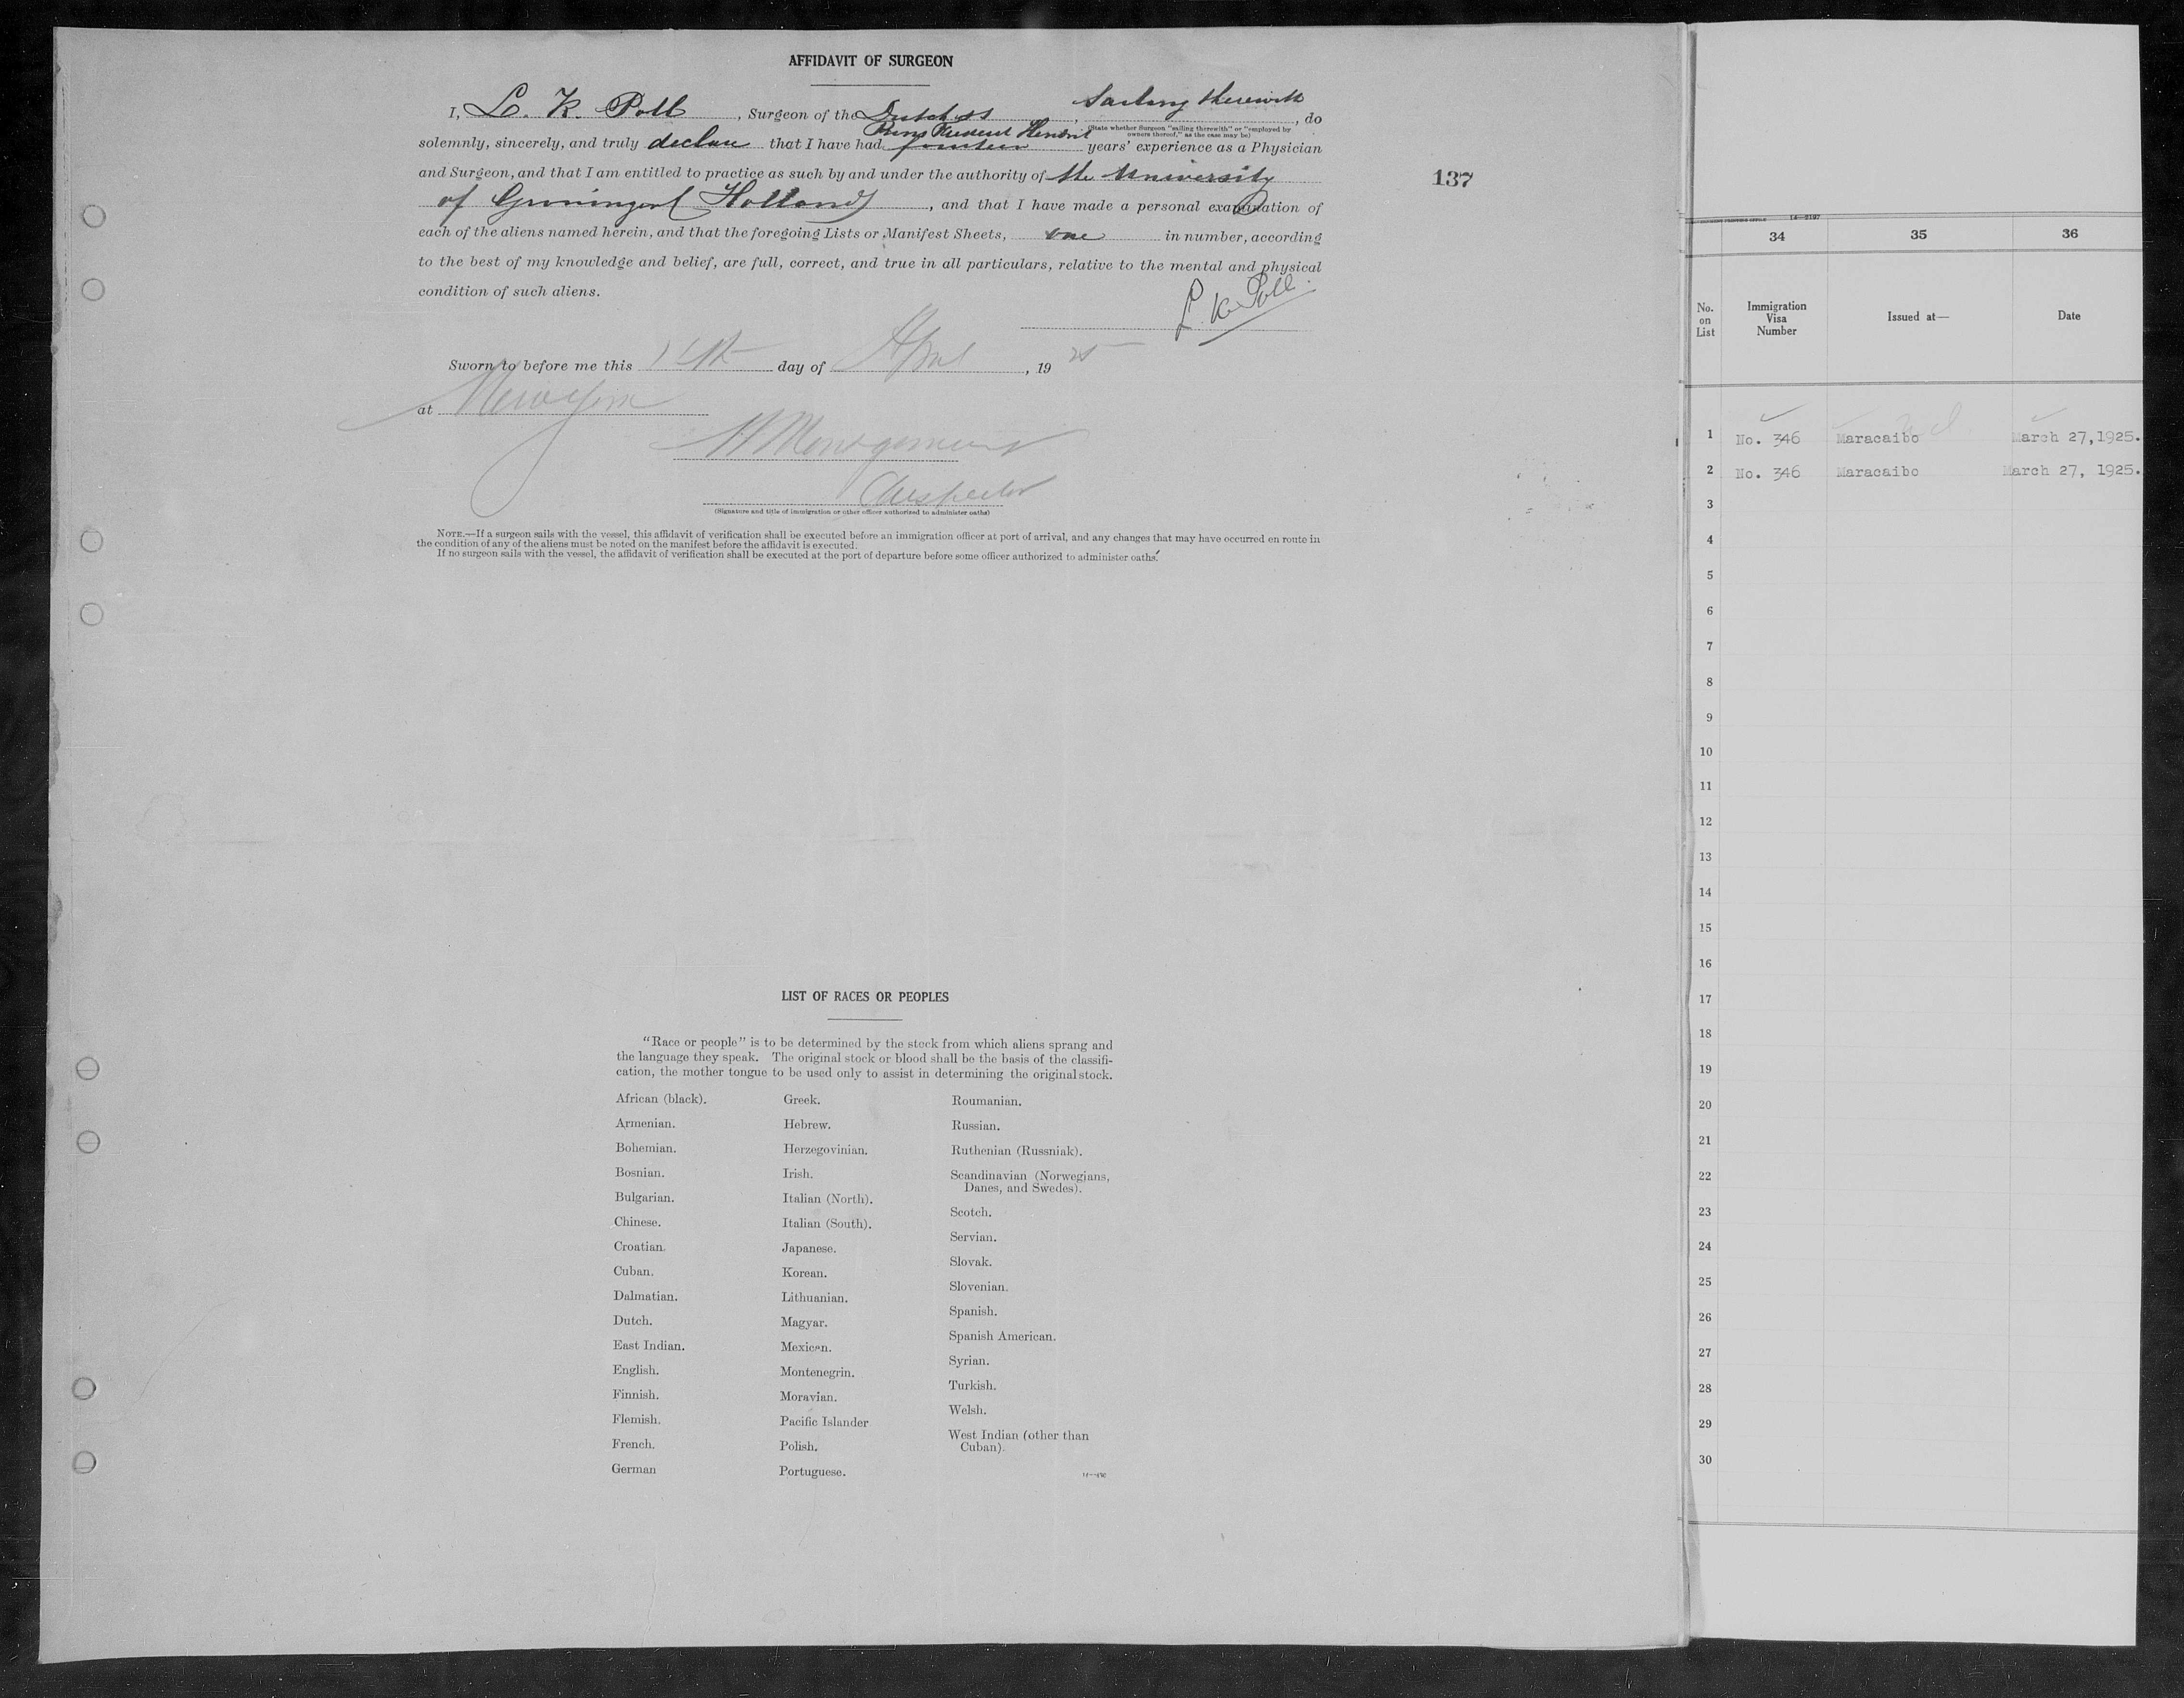 AFFIDAVIT OF SURGEON
I, L. K. Poll, Surgeon of the Dutch ss, Sailing therewith, do
(State whether Surgeon "sailing therewith" or "employed by
owners thereof," as the case may be)
Prins Frederik Hendrik
solemnly, sincerely, and truly declare that I have had fourteen years' experience as a Physician
and Surgeon, and that I am entitled to practice as such by and under the authority of the University
of Groningen (Holland), and that I have made a personal examination of
each of the aliens named herein, and that the foregoing Lists or Manifest Sheets, one in number, according
to the best of my knowledge and belief, are full, correct, and true in all particulars, relative to the mental and physical
condition of such aliens.
L. K. Poll.
Sworn to before me this day of April, 1925
at New York
Inspector
(Signature and title of immigration or other officer authorized to administer oaths)
NOTE.—If a surgeon sails with the vessel, this affidavit of verification shall be executed before an immigration officer at port of arrival, and any changes that may have occurred en route in
the condition of any of the aliens must be noted on the manifest before the affidavit is executed.
If no surgeon sails with the vessel, the affidavit of verification shall be executed at the port of departure before some officer authorized to administer oaths.
137
LIST OF RACES OR PEOPLES
"Race or people" is to be determined by the stock from which aliens sprang and
the language they speak. The original stock or blood shall be the basis of the classifi-
cation, the mother tongue to be used only to assist in determining the original stock.
African (black).
Armenian.
Bohemian.
Bosnian.
Bulgarian.
Chinese.
Croatian.
Cuban.
Dalmatian.
Dutch.
East Indian.
English.
Finnish.
Flemish.
French.
German
Greek.
Hebrew.
Herzegovinian.
Irish.
Italian (North).
Italian (South).
Japanese.
Korean.
Lithuanian.
Magyar.
Mexican.
Montenegrin.
Moravian.
Pacific Islander
Polish.
Portuguese.
Roumanian.
Russian.
Ruthenian (Russniak).
Scandinavian (Norwegians,
Danes, and Swedes).
Scotch.
Servian.
Slovak.
Slovenian.
Spanish.
Spanish American.
Syrian.
Turkish.
Welsh.
West Indian (other than
Cuban).
34 35 36
No. on List
Immigration Visa Number
Issued at—
Date
1 No. 346 Maracaibo March 27,1925.
2 No. 346 Maracaibo March 27, 1925.
3
4
5
6
7
8
9
10
11
12
13
14
15
16
17
18
19
20
21
22
23
24
25
26
27
28
29
30